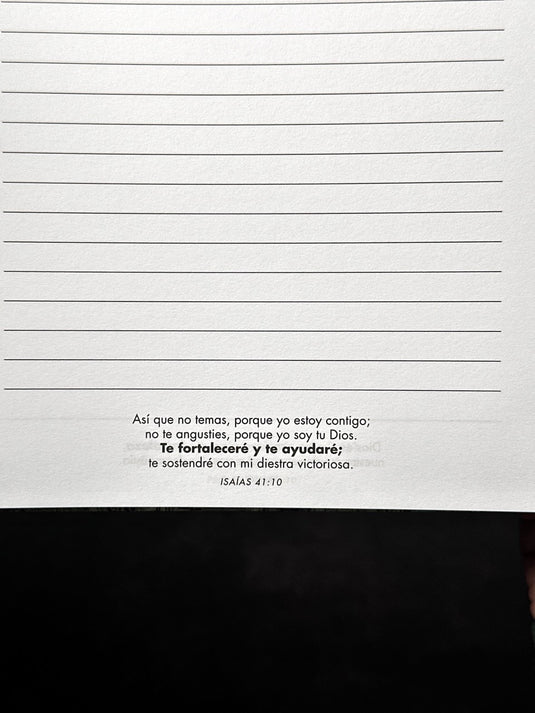 Así que no temas, porque yo estoy contigo;
no te angusties, porque yo soy tu Dios.
Te fortaleceré y te ayudaré;
te sostendré con mi diestra victoriosa.
ISAÍAS 41:10